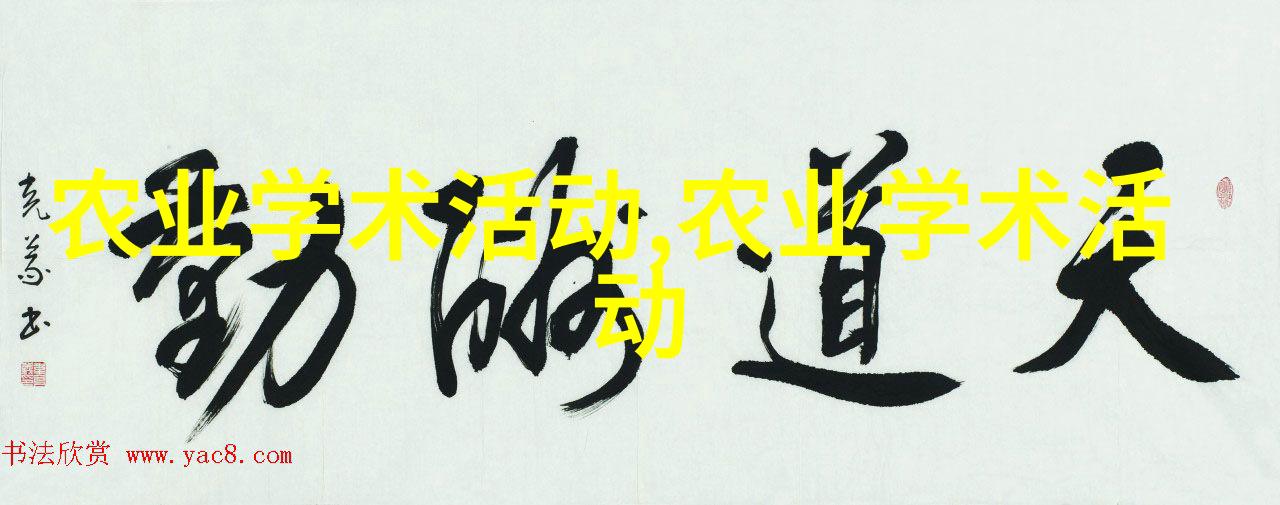 农业学术活动,农业学术活
动
天道酬勤
书法欣赏 www.yac8.com